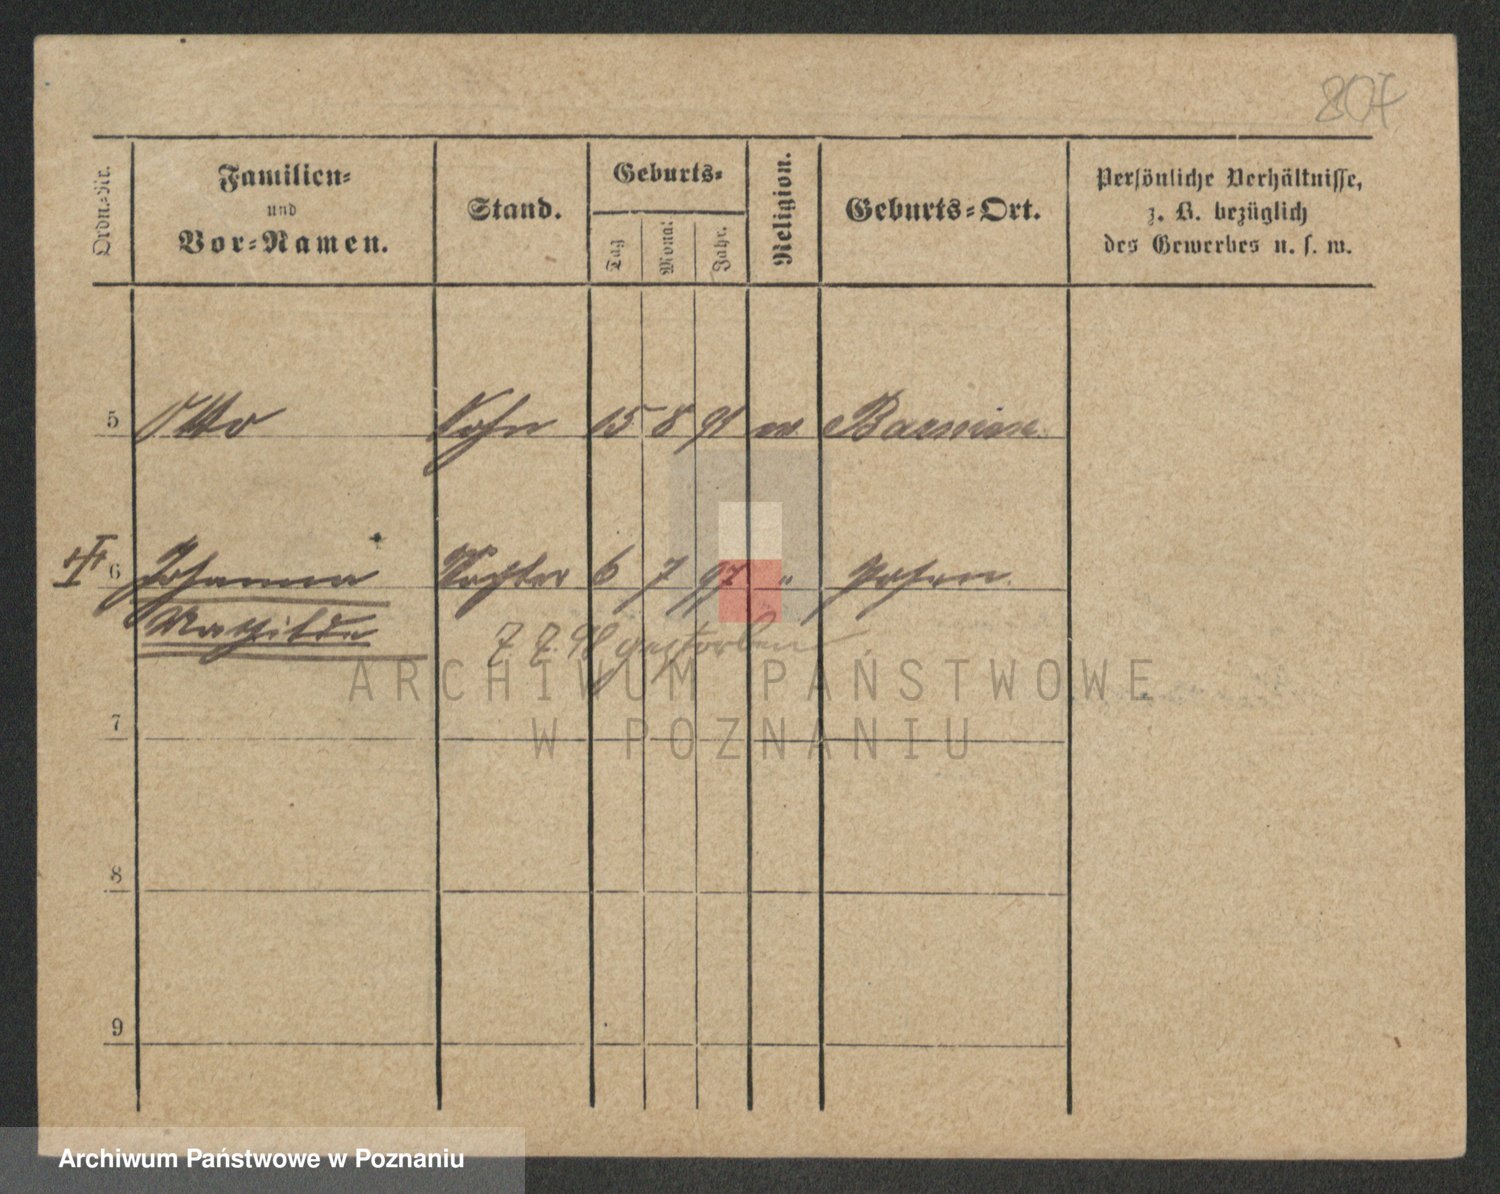 807
Ordn.-Nr.
Familien-
und
Vor-Namen.
Stand.
Geburts-
Tag
Monat
Jahr.
Religion.
Geburts-Ort.
Persönliche Verhältnisse,
z. B. bezüglich
des Gewerbes u. s. w.
5 Otto Sohn 15 8 91 ev.
6 Johanna Tochter 6 7 97 " Posen.
Mathilde
7 7. 98 gestorben
ARCHIWUM PAŃSTWOWE
W POZNANIU
7
8
9
Archiwum Państwowe w Poznaniu